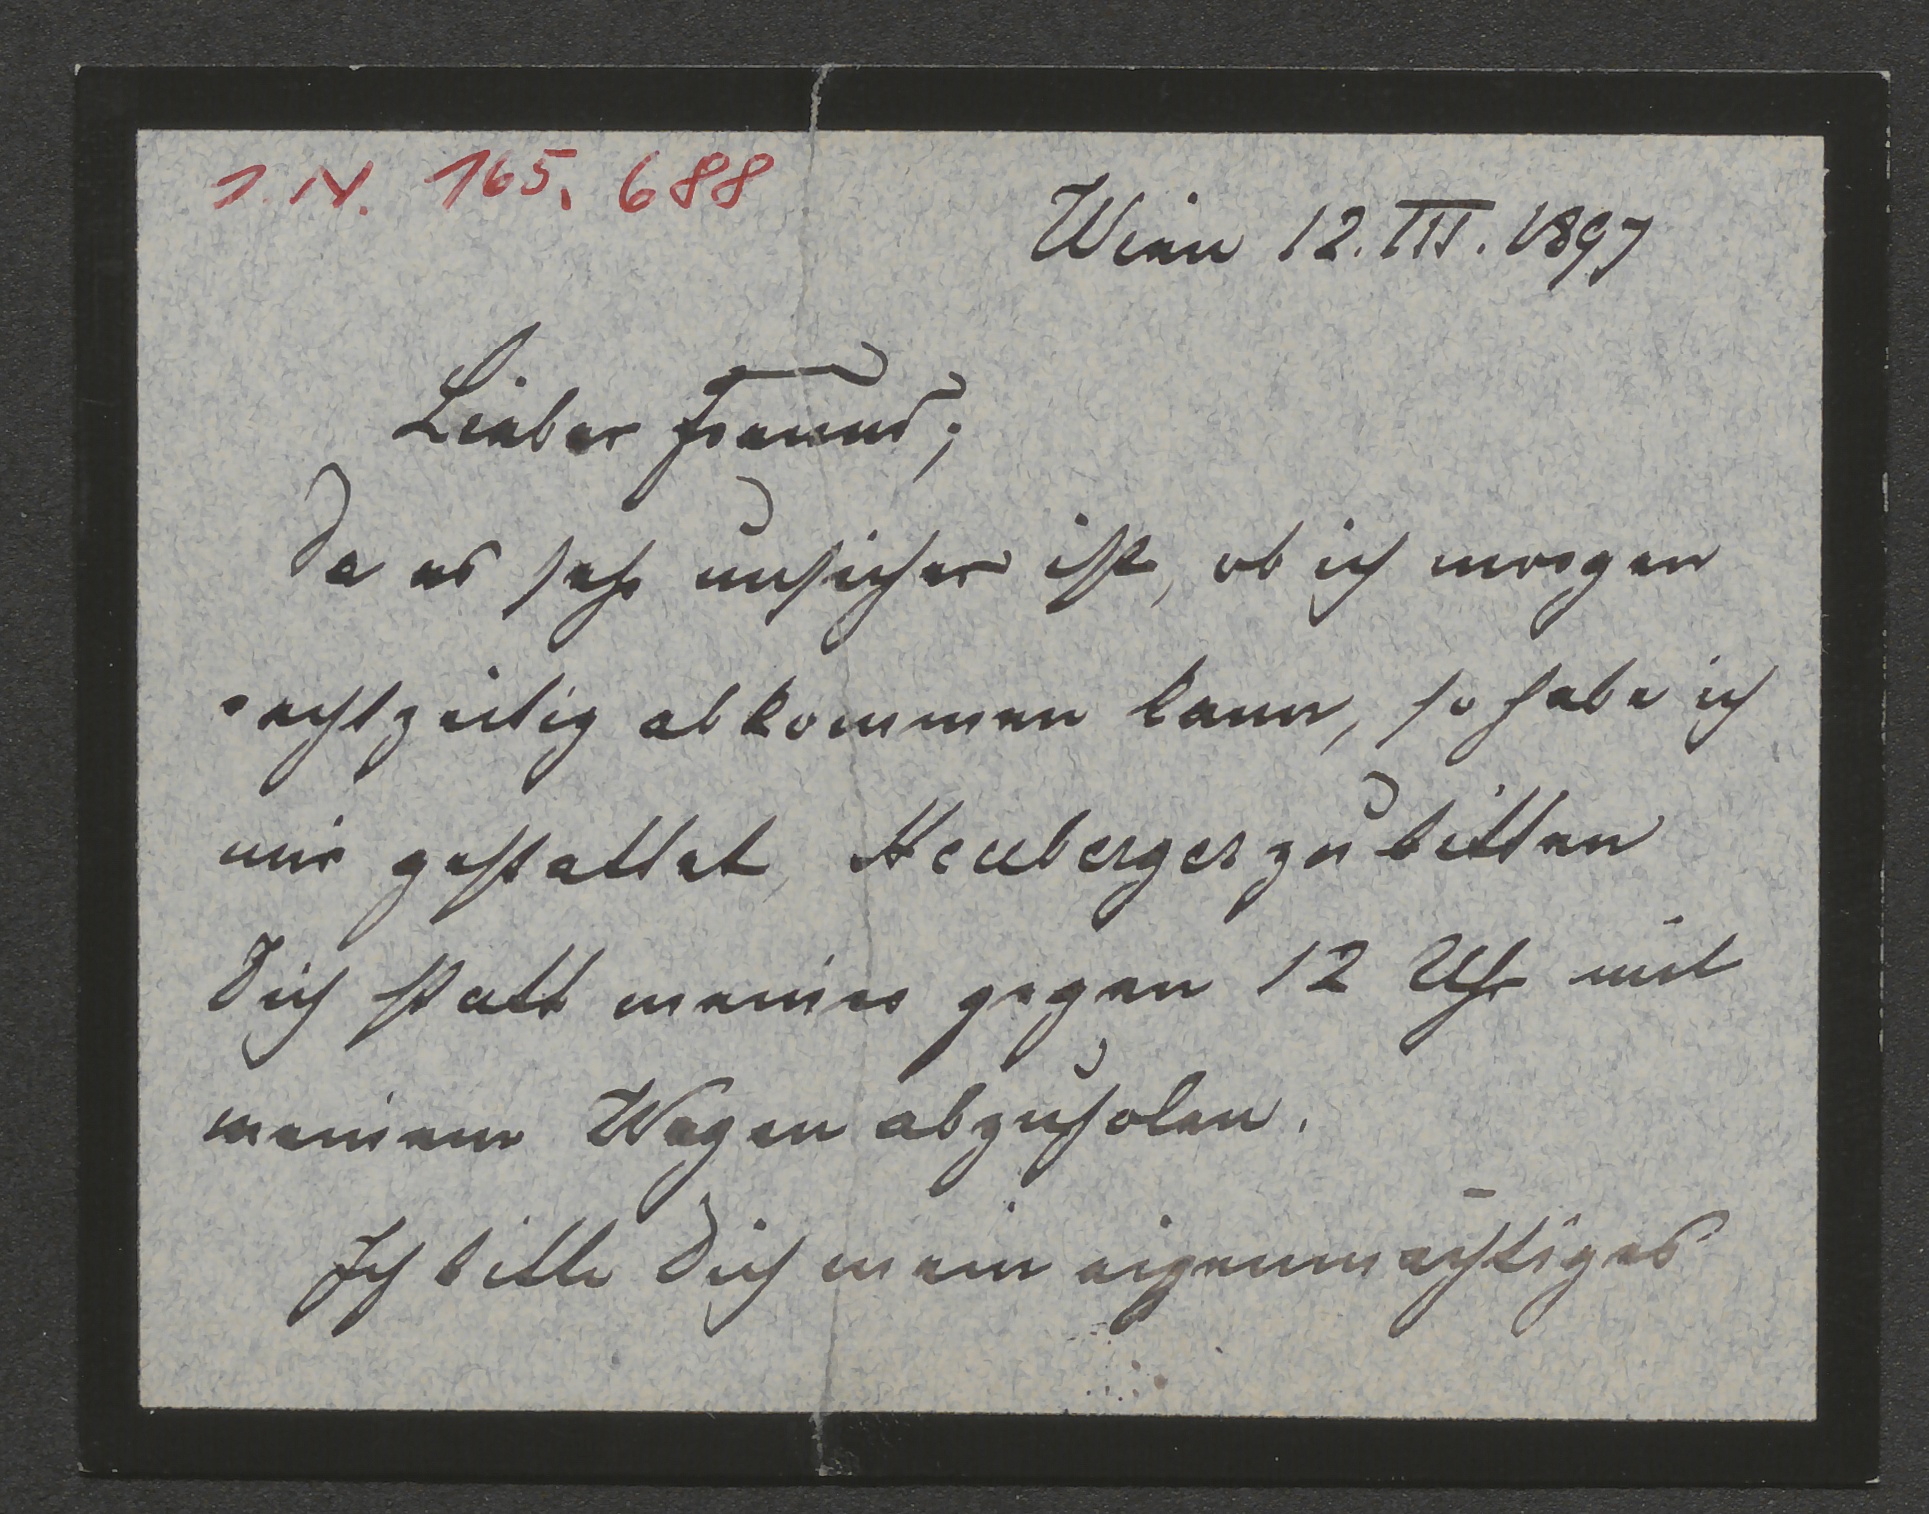 I. N. 165.688
Wien 12. III. 1897
Lieber Freund;
Da es sehr unsicher ist, ob ich morgen
rechtzeitig abkommen kann, so habe ich
mir gestattet, Heuberger zu bitten
Dich statt meiner gegen 12 Uhr mit
meinem Wagen abzuholen.
Ich bitte Dich mein eigenmächtiges